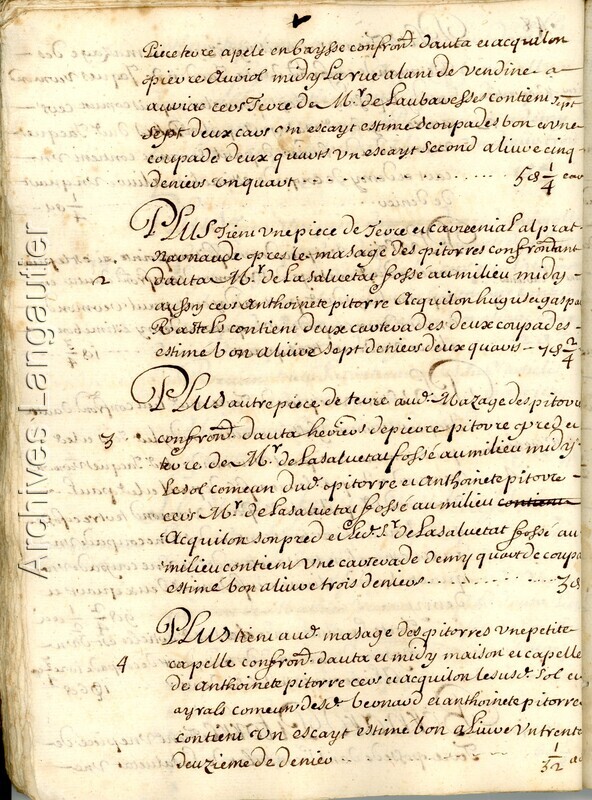 Piece terre apelé en baysse confron.t d'auta et acquilon
pierre Auriol midy La rue alant de Vendine a
auriac cers Terre de M.r de Laubaresses contient sept
deux cavs Un escayt estimé coupades bon et une
coupade deux quarts Un escayt Second a livre cinq
deniers Un quart 5 d 1/4
PLUS Tient Une piece de Terre et al prat
pres le masage des pitorres confrontant
d'auta M.r de La Saluetat fossé au milieu midy
aussy cers Anthoinete pitorre Acquilon hugues et gaspa
Rastels contient deux carterades deux coupades
estimé bon a livre sept deniers deux quarts 7 d 2/4
2
PLUS autre piece de terre aud. Mazage des pitorre
confron.t d'auta heritiers de pierre pitorre pred et
terre de M.r de La Saluetat fossé au milieu midy
Le sol comeun dud. pitorre et Anthoinete pitorre
cers M.r de La Saluetat fossé au milieu contient
Acquilon son pred et led. S.r de La Saluetat fossé au
milieu contient Une carterade demy quart de coupa
estimé bon a livre trois deniers 3 d
3
PLUS tient aud. masage des pitorres Une petite
capelle confron.t d'auta et midy maison et capelle
de Anthoinete pitorre cers et acquilon le susd. sol et
ayrals comeun desd. bernard et anthoinete pitorre
contient Un escayt estimé bon a Livre Un trente
deuzieme de denier 1/32
4
Archives Langautier